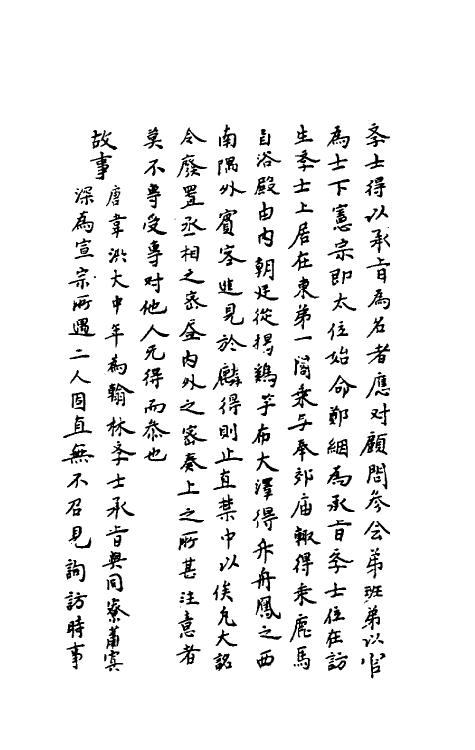 季士得以承旨为名者應对顧問参会茀班茀以官
為士下憲宗即太位始命鄭絪為承旨季士位在訪
生季士上居在東第一閤乗与奉郊庙輒得乗廐馬
自浴殿由内朝廷從揭鷄竿布大澤得升丹鳳之西
南隅外賓客進見於麟得則止直禁中以俟凡大詔
令廢置丞相之密昼内外之密奏上之所甚注意者
莫不専受専对他人无得而叅也
故事
唐韋澳大中年為翰林季士承旨與同寮蕭寘
深為宣宗所遇二人因直無不召見詢訪時事